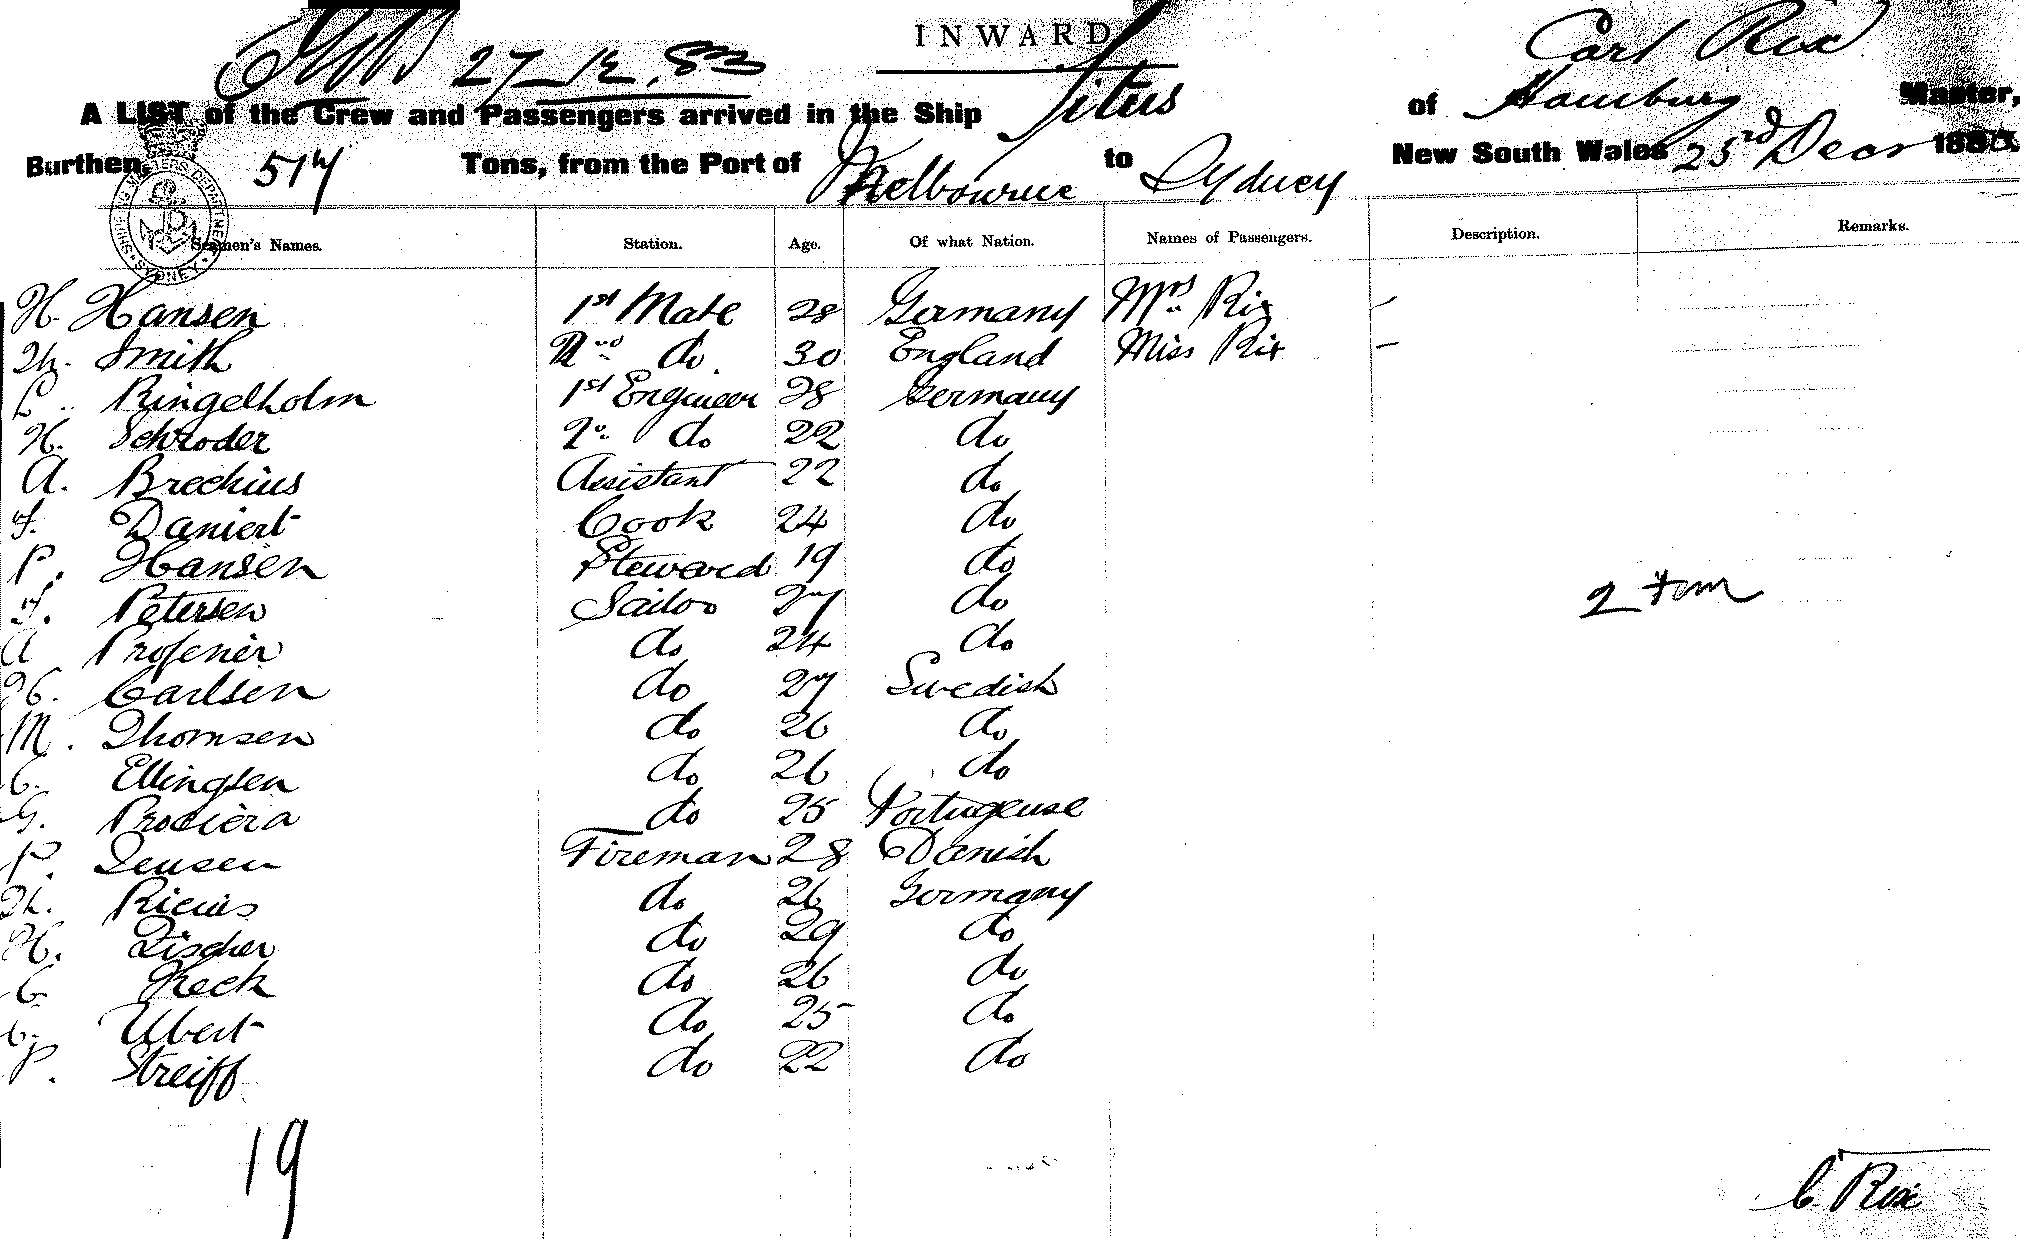 INWARD
27.12.83
Carl Rix
A LIST of the Crew and Passengers arrived in the Ship Titus of Hamburg Master,
Burthen, 517 Tons, from the Port of Melbourne to Sydney New South Wales 25rd Decr 1883
SHIPPING MASTER'S DEPARTMENT SYDNEY
Seamen's Names. Station. Age. Of what Nation. Names of Passengers. Description. Remarks.
H. Hansen 1st Mate 28 Germany Mrs Rix
Th. Smith 2nd do 30 England Miss Rix
L. Ringelholm 1st Engineer 28 Germany
H. Schroder 2n do 22 do
A. Brechius Assistant 22 do
F. Daniert Cook 24 do
P. Hansen Steward 19 do
F. Petersen Sailor 27 do
A Profenir do 24 do
H. Carlsen do 27 Swedish
M. Thomsen do 26 do
C. Ellingsen do 26 do
G. do 25 Portugeuse
P. Jensen Fireman 28 Danish
Th. Ricius do 26 Germany
H. Fischer do 29 do
C. Keck do 26 do
C. Ubert do 25 do
P. Streiff do 22 do
2
19
C. Rix